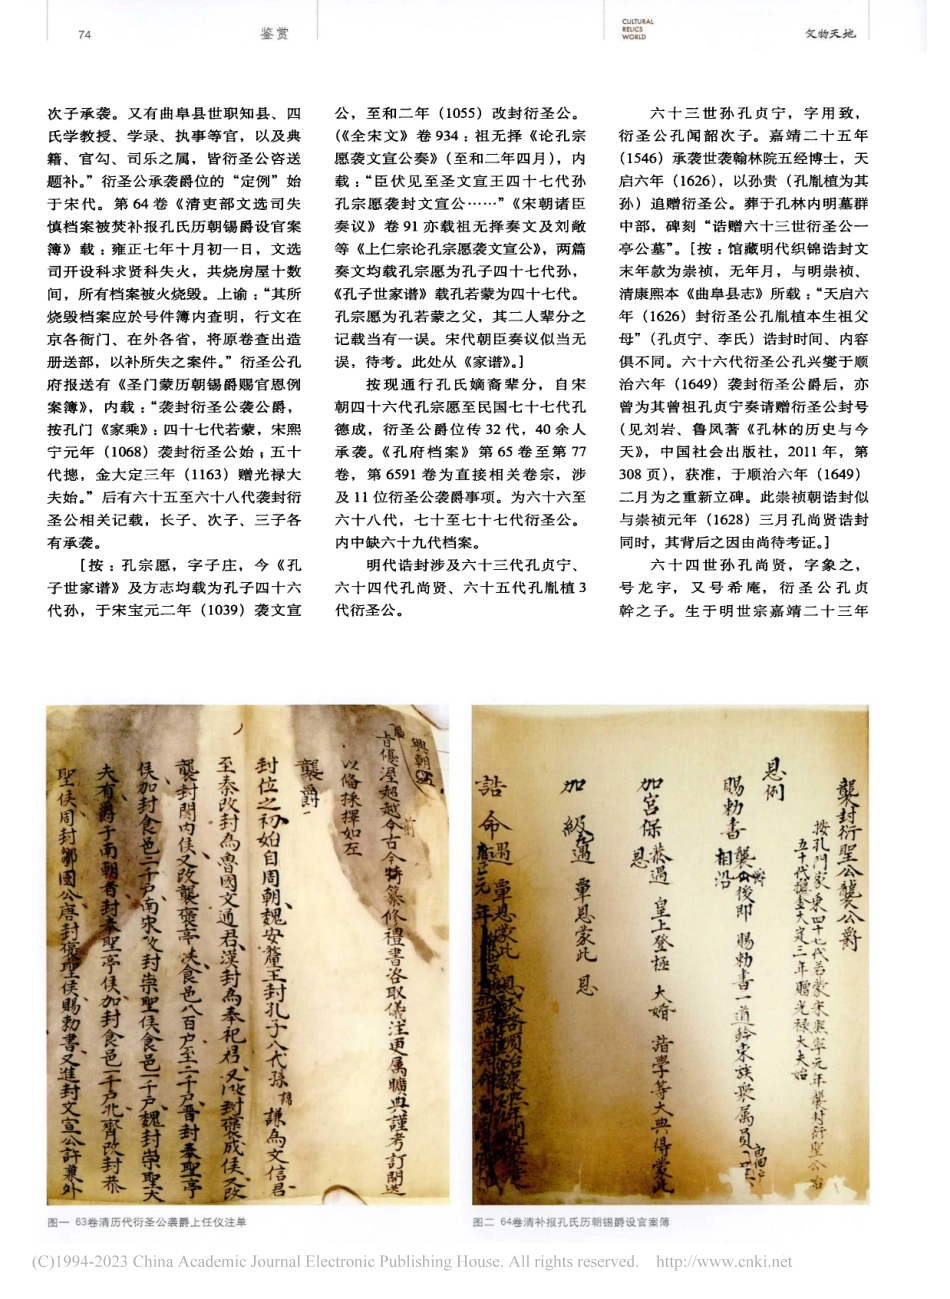 74
鉴赏
CULTURAL
RELICS
WORLD
文物天地
次子承袭。又有曲阜县世职知县、四
氏学教授、学录、执事等官，以及典
籍、官勾、司乐之属，皆衍圣公咨送
题补。”衍圣公承袭爵位的“定例”始
于宋代。第64卷《清吏部文选司失
慎档案被焚补报孔氏历朝锡爵设官案
簿》载：雍正七年十月初一日，文选
司开设科求贤科失火，共烧房屋十数
间，所有档案被火烧毁。上谕：“其所
烧毁档案应於号件簿内查明，行文在
京各衙门、在外各省，将原卷查出造
册送部，以补所失之案件。”衍圣公孔
府报送有《圣门蒙历朝锡爵赐官恩例
案簿》，内载：“袭封衍圣公袭公爵，
按孔门《家乘》：四十七代若蒙，宋熙
宁元年（1068）袭封衍圣公始；五十
代摠，金大定三年（1163）赠光禄大
夫始。”后有六十五至六十八代袭封衍
圣公相关记载，长子、次子、三子各
有承袭。
[按：孔宗愿，字子庄，今《孔
子世家谱》及方志均载为孔子四十六
代孙，于宋宝元二年（1039）袭文宣
公，至和二年（1055）改封衍圣公。
（《全宋文》卷934：祖无择《论孔宗
愿袭文宣公奏》（至和二年四月），内
载：“臣伏见至圣文宣王四十七代孙
孔宗愿袭封文宣公……”《宋朝诸臣
奏议》卷91亦载祖无择奏文及刘敞
等《上仁宗论孔宗愿袭文宣公》，两篇
奏文均载孔宗愿为孔子四十七代孙，
《孔子世家谱》载孔若蒙为四十七代。
孔宗愿为孔若蒙之父，其二人辈分之
记载当有一误。宋代朝臣奏议似当无
误，待考。此处从《家谱》。]
按现通行孔氏嫡裔辈分，自宋
朝四十六代孔宗愿至民国七十七代孔
德成，衍圣公爵位传32代，40余人
承袭。《孔府档案》第65卷至第77
卷，第6591卷为直接相关卷宗，涉
及11位衍圣公袭爵事项。为六十六至
六十八代，七十至七十七代衍圣公。
内中缺六十九代档案。
明代诰封涉及六十三代孔贞宁、
六十四代孔尚贤、六十五代孔胤植3
代衍圣公。
六十三世孙孔贞宁，字用致，
衍圣公孔闻韶次子。嘉靖二十五年
（1546）承袭世袭翰林院五经博士，天
启六年（1626），以孙贵（孔胤植为其
孙）追赠衍圣公。葬于孔林内明墓群
中部，碑刻“诰赠六十三世衍圣公一
亭公墓”。[按：馆藏明代织锦诰封文
末年款为崇祯，无年月，与明崇祯、
清康熙本《曲阜县志》所载：“天启六
年（1626）封衍圣公孔胤植本生祖父
母”（孔贞宁、李氏）诰封时间、内容
俱不同。六十六代衍圣公孔兴燮于顺
治六年（1649）袭封衍圣公爵后，亦
曾为其曾祖孔贞宁奏请赠衍圣公封号
（见刘岩、鲁凤著《孔林的历史与今
天》，中国社会出版社，2011年，第
308页），获准，于顺治六年（1649）
二月为之重新立碑。此崇祯朝诰封似
与崇祯元年（1628）三月孔尚贤诰封
同时，其背后之因由尚待考证。]
六十四世孙孔尚贤，字象之，
号龙宇，又号希庵，衍圣公孔贞
幹之子。生于明世宗嘉靖二十三年
興朝
前
旨優渥超越今古今特纂修禮書洛取儀注更属曠典謹考訂開造
以備採擇如左
襲爵
封位之初始自周朝魏安釐王封孔子八代孫謙為文信君
至秦改封為魯國文通君漢封為奉祀君又改封褒成侯又改
襲封関内侯又改襲褒亭侯食邑八百户至二千户晋封奉聖亭
侯加封食邑二千户南宋改封崇聖侯食邑一千户魏封崇聖大
夫有爵于南朝者封奉聖亭侯加封食邑一千户北齊改封恭
聖侯周封鄒國公唐封褒聖侯賜勅書又進封文宣公許兼外
襲封衍聖公襲公爵
按孔門家乘四十七代若蒙宋熙寧元年襲封衍聖公始
五十代摠金大定三年贈光禄大夫始
恩例
賜勅書襲爵後即賜勅書一道鈐束族衆属員
相沿
加宮保恭遇皇上登極大婚諧學等大典得蒙此
恩
加級遇覃恩蒙此恩
誥命遇覃恩蒙此恩
图一 63卷清历代衍圣公袭爵上任仪注单
图二 64卷清补报孔氏历朝锡爵设官案簿
(C)1994-2023 China Academic Journal Electronic Publishing House. All rights reserved. http://www.cnki.net